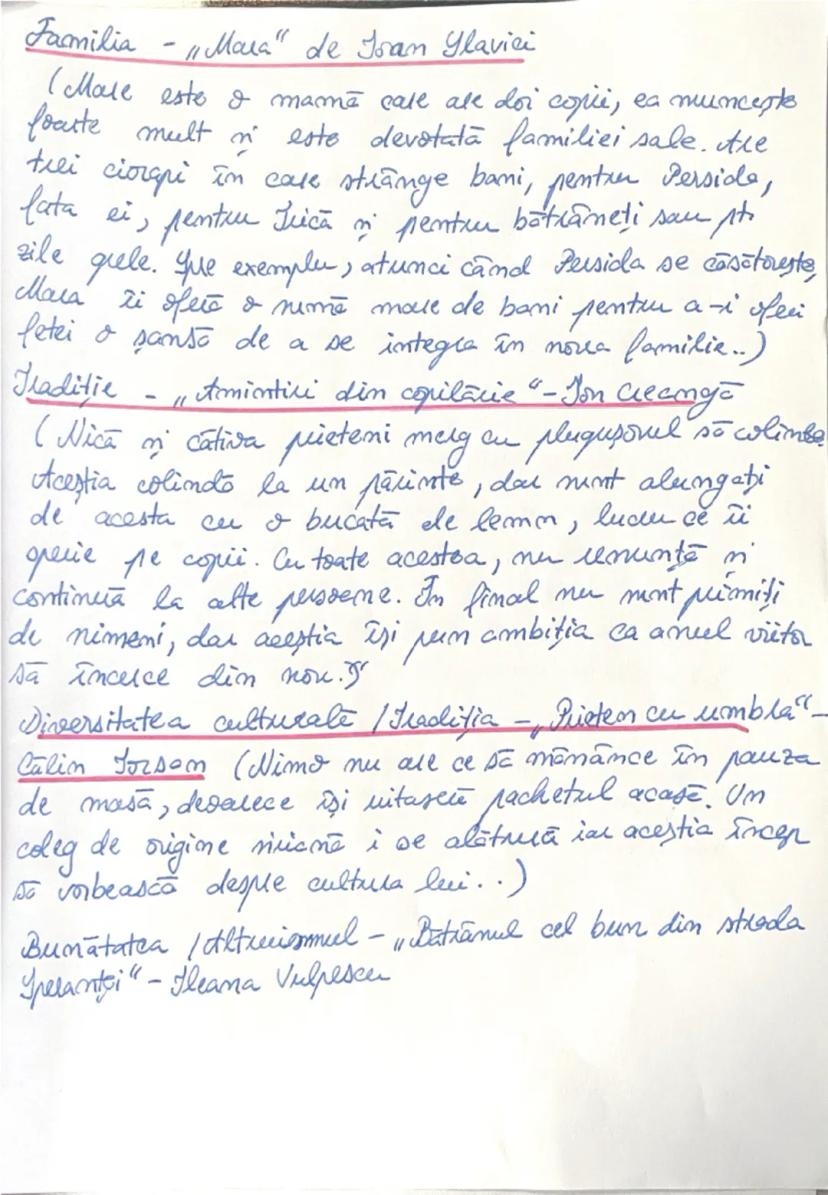 Familia - „Mara" de Ioan Slavici
(Mare este o mamă care are doi copii, ea muncește
foarte mult și este devotată familiei sale. Are
trei ciorapi în care strânge bani, pentru Persida,
fata ei, pentru Trică și pentru bătrânețî sau pt
zile grele. Spre exemplu, atunci când Persida se căsătorește,
Mara îi oferă o sumă mare de bani pentru a-i oferi
fetei o șansă de a se integra în noua familie..)
Tradiție - „Amintiri din copilărie" - Ion Creangă
(Nică și câtiva prieteni merg cu plugușorul să colinde.
Aceștia colindă la un părinte, dar sunt alungați
de acesta cu o bucată de lemn, lucru ce îi
sperie pe copii. Cu toate acestea, nu renunță și
continuă la alte persoane. În final nu sunt primiți
de nimeni, dar aceștia își pun ambiția ca anul viitor
să încerce din nou.)"
Diversitatea culturală / Tradiția - „Prieten cu umbra" -
Călin Torsan (Nimo nu are ce să mănânce în pauza
de masă, deoarece își uitaseră pachetul acasă. Un
coleg de origine siriană i se alătură iar aceștia încep
să vorbească despre cultura lui..)
Bunătatea / Altruismul - „Bătrânul cel bun din strada
Speranței" - Ileana Vulpescu